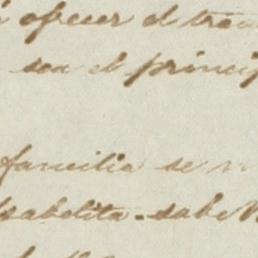 ofrecer el
sea el princip
familia se
sabelita. sabe